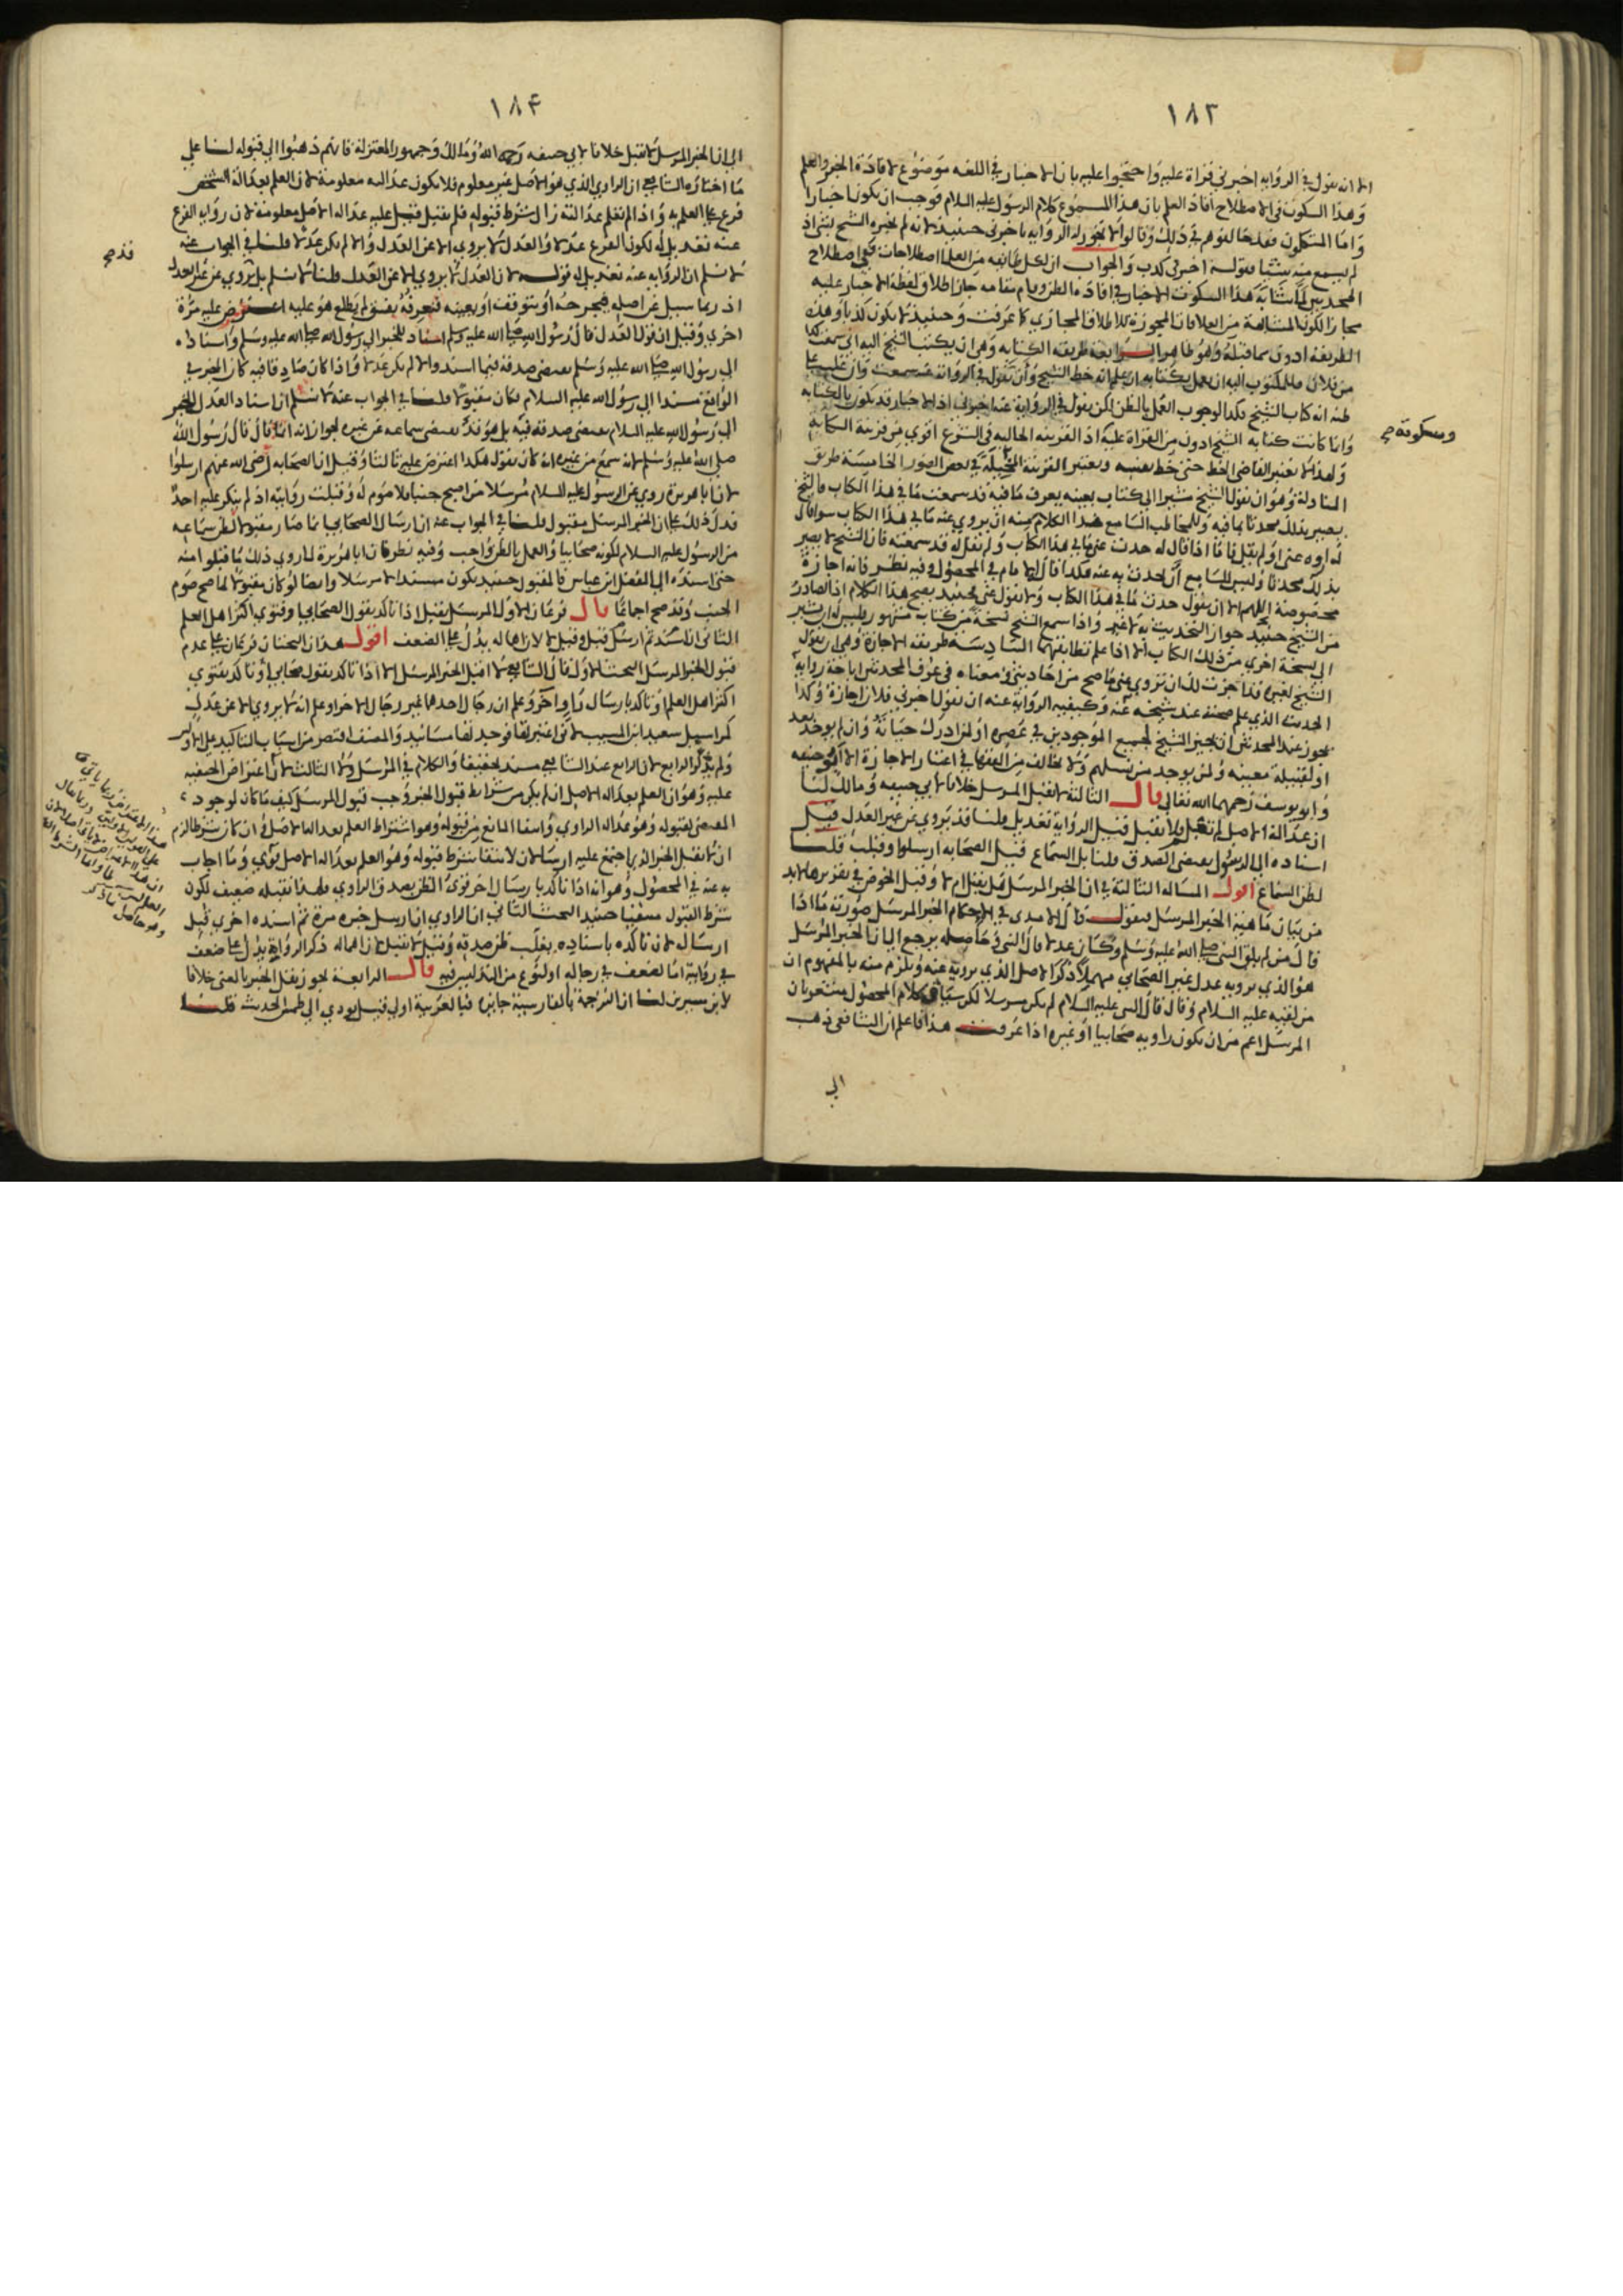 ١٨٣
الا انه يقول في الرواية اخبرني قراة عليه واحتجوا عليه بان الاخبار في اللغه موضوع لافادة الخبر والعلم
وهذا السكوت في الاصطلاح افاد العلم بان هذا المسموع كلام الرسول عليه السلام فوجب ان يكون اخبارا
واما المتكلمون فقد خالفوهم في ذلك وقالوا لا يجوز له الرواية باخبرني حينئذ لانه لم يخبره الشيخ بشئ اذ
لم يسمع منه شيئا فقوله اخبرني كذب والجواب ان لكل طائفه من العلما اصطلاحات ففي اصطلاح
المحدثين لما شابه هذا السكوت الاخبار في افادة الظن وقام مقامه جاز اطلاق لفظة الاخبار عليه
مجازا لكون المشابهة من العلاقات المجوزة للاطلاق المجازي كما عرفت وحينئذ لا يكون كذبا وهذه
الطريقة ادون مما قبله وهو ظاهر الرابعة طريقة الكتابه وهي ان يكتب الشيخ اليه اني سمعت كذا
من فلان فللمكتوب اليه ان يعمل بكتابه ان علم انه خط الشيخ وان يقول في الرواية سمعت وان غلب على
ظنه انه كتاب الشيخ فكذا لوجوب العمل بالظن لكن يقول في الرواية عنه اخبرني اذ الاخبار قد يكون بالكتابه
وانما كانت كتابه الشيخ ادون من القراة عليه اذ القرينه الحاليه في الشرع اقوي من قرينة الكتابة
ولهذا لا يعتبر القاضي الخط حتى خط نفسه ويعتبر القرينة المخيلة في بعض الصور الخامسة طريق
المناولة وهو ان يقول الشيخ مشيرا الي كتاب بعينه يعرف ما فيه قد سمعت ما في هذا الكتاب فالشيخ
يصير بذلك محدثا بما فيه وللمخاطب السامع هذا الكلام منه ان يروي عنه ما في هذا الكتاب سوا قال
له اروه عني او لم يقل فاما اذا قال له حدث عني ما في هذا الكتاب ولم يقل له قد سمعته فان الشيخ لا يصير
بذلك محدثا وليس للسامع ان يحدث به عنه هكذا قال الامام في المحصول وفيه نظر فانه اجازة
مخصوصة اللهم الا ان يقول حدث ما في هذا الكتاب ولا يقول عني فحينئذ يصح هذا الكلام اذ الصادر
من الشيخ حينئذ جواز التحديث به لا غير واذا سمع الشيخ نسخة من كتاب مشهور فليس له ان يشير
الي نسخة اخري من ذلك الكتاب الا اذا علم تطابقهما السادسة طريقه الاجازة وهي ان يقول
الشيخ لغيره قد اجزت لك ان تروي عني ما صح من احاديثي ومعناه في عرف المحدثين اباحة رواية
الحديث الذي علم صحته عند شيخه عنه وكيفيه الرواية عنه ان يقول اخبرني فلان اجازة وكذا
يجوز عند المحدثين ان يجيز الشيخ لجميع الموجودين في عصره او لمن ادرك حياته وان لم يوجد بعد
او لقبيلة معينه ولمن يوجد من نسلهم ولا يخالف من الفقها في اعتبار الاجازة الا ابو حنيفه
وابو يوسف رحمهما الله تعالي قال الثالثة لا يقبل المرسل خلافا لابي حنيفه ومالك لنا
ان عدالة الاصل لم تعلم فلا تقبل قيل الرواية تعديل قلنا قد يروي عن غير العدل قيل
اسناده الي الرسول يقتضي الصدق قلنا بل السماع قيل الصحابه ارسلوا وقبلت قلنا
لظن السماع اقول المساله الثالثة في ان الخبر المرسل هل يقبل ام لا وقبل الخوض في تقريرها لا بد
من بيان ماهية الخبر المرسل فنقول قال الامدي في الاحكام الخبر المرسل صورته ما اذا
قال من لم يلق النبي صلى الله عليه وسلم وكان عدلا قال النبي وحاصله يرجع الي ان الخبر المرسل
هو الذي يرويه عدل غير الصحابي مهملا ذكر الاصل الذي يرويه عنه ويلزم منه بالمفهوم ان
من لقيه عليه السلام وقال قال النبي عليه السلام لم يكن مرسلا لكن سياق كلام المحصول مشعر بان
المرسل اعم من ان يكون راويه صحابيا او غيره اذا عرفت هذا فاعلم ان الشافعي ذهب
الي
وسكوته صح
١٨٤
الي ان الخبر المرسل لا يقبل خلافا لابي حنيفه رحمه الله ومالك وجمهور المعتزلة فانهم ذهبوا الي قبوله لنا علي
ما اختاره الشافعي ان الراوي الذي هو الاصل غير معلوم فلا يكون عدالته معلومة لان العلم بعدالة الشخص
فرع علي العلم به واذا لم تعلم عدالته زال شرط قبوله فلم يقبل قيل عليه عداله الاصل معلومة لان رواية الفرع
عنه تعديل له لكون الفرع عدلا والعدل لا يروي الا عن العدل والا لم يكن عدلا قلنا في الجواب عنه
لا نسلم ان الرواية عنه تعديل له قوله لان العدل لا يروي الا عن العدل قلنا لا نسلم بل يروي عن غير العدل
اذ ربما سئل عن اصله فيجرحه او يتوقف او يعينه فنعرفه بفسق لم يطلع هو عليه اعترض عليه مرة
اخري وقيل ان قول العدل قال رسول الله صلى الله عليه وسلم اسناد للخبر الي رسول الله صلى الله عليه وسلم واسناده
الي رسول الله صلى الله عليه وسلم يقتضي صدقه فيما اسند والا لم يكن عدلا واذا كان صادقا فيه كان الخبر في
الواقع مسندا الي رسول الله عليه السلام فكان مقبولا قلنا في الجواب عنه لا نسلم ان اسناد العدل الخبر
الي رسول الله عليه السلام يقتضي صدقه فيه بل هو قد يقتضي سماعه عن غيره لجواز انه انما قال قال رسول الله
صلى الله عليه وسلم لانه سمع من غيره انه كان يقول هكذا اعترض عليه ثالثا وقيل ان الصحابه رضي الله عنهم ارسلوا
لان ابا هريرة روي عن الرسول عليه السلام مرسلا من اصبح جنبا فلا صوم له وقبلت روايته اذ لم ينكر عليه احد
فدل ذلك علي ان الخبر المرسل مقبول قلنا في الجواب عنه ان ارسال الصحابي انما صار مقبولا لظن سماعه
من الرسول عليه السلام لكونه صحابيا والعمل بالظن واجب وفيه نظر فان ابا هريرة لما روي ذلك ما قبلوا منه
حتى اسنده الي الفضل ابن عباس فالمقبول حينئذ يكون مسندا لا مرسلا وايضا لو كان مقبولا لما صح صوم
الجنب وقد صح اجماعا قال فرعان الاول المرسل يقبل اذا تاكد بقول الصحابي او فتوي اكثر اهل العلم
الثاني ان اسند ثم ارسل قبل وقيل لا لان اهماله يدل علي الضعف اقول هذان البحثان فرعان علي عدم
قبول الخبر المرسل البحث الاول قال الشافعي لا اقبل الخبر المرسل الا اذا تاكد بقول صحابي او تاكد بفتوي
اكثر اهل العلم او تاكد بارسال راو اخر وعلم ان رجال احدهما غير رجال الاخر او علم انه لا يروي الا عن عدل
كمراسيل سعيد ابن المسيب لاني اعتبرتها فوجدتها مسانيد والمصنف اقتصر من اسباب التاكيد علي الاولين
ولم يذكر الرابع لان الرابع عند الشافعي مسند تحقيقا والكلام في المرسل ولا الثالث لان اعتراض الحنفيه
عليه وهو ان العلم بعداله الاصل ان لم يكن من شرايط قبول الخبر وجب قبول المرسل كيف ما كان لوجود
المقتضي لقبوله وهو عداله الراوي وانتفا المانع من قبوله وهو اشتراط العلم بعداله الاصل وان كان شرطا لزم
ان لا يقبل الخبر الذي اجتمع عليه ارسالان لانتفا شرط قبوله وهو العلم بعداله الاصل قوي وما اجاب
به عنه في المحصول وهو انه اذا تاكد بارسال اخر قوي الظن بصدق الراوي فلهذا نقبله ضعيف لكون
شرط القبول منتفيا حينئذ البحث الثاني ان الراوي ان ارسل خبره مرة ثم اسنده اخري قبل
ارساله لان تاكده باسناده يغلب ظن صدقه وقيل لا يقبل لان اهماله ذكر الرواية يدل علي ضعف
في رواية اما لضعف في رجاله او لنوع من التدليس فيه قال الرابعة يجوز نقل الخبر بالمعنى خلافا
لابن سيرين لنا ان الترجمة بالفارسية جايزه فبالعربية اولي قيل يودي الي طمس الحديث قلنا